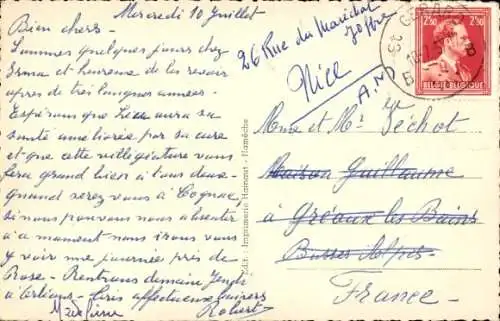 Mercredi 10 Juillet
Bien chers -
Sommes quelques jours chez
Irma et heureuse de les revoir
apres de trois longues années -
Espérons que Léa aura sa
santé améliorée par sa cure
et que cette villégiature vous
fera grand bien à tous deux -
quand serez vous à Cognac,
si nous pouvons nous absenter
à ce moment nous irons vous
y voir une journée près de
Rose - Rentrons demain Jeudi
à Orléans - Gros affectueux baisers
Robert
26 Rue du Maréchal
Joffre
Nice
A. M
Edit. - Imprimerie Hainaut - Hamèche
2F50
2F50
BELGIE BELGIQUE
B
B
Mme et Mr Péchot
Maison Guillaume
à Gréoux les Bains
Basses Alpes
France -